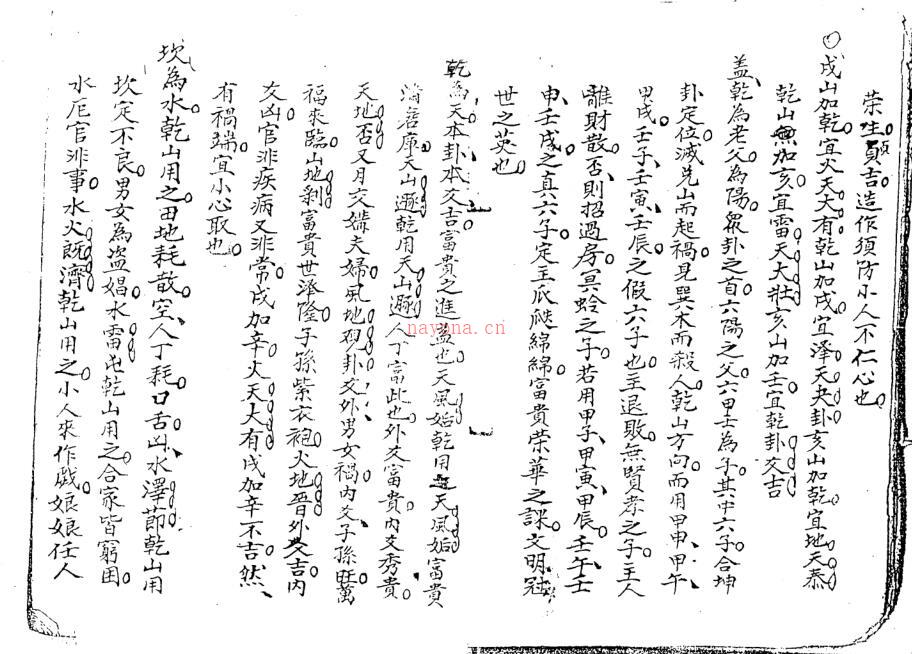 荣旺員吉造作須防小人不仁心也
戌山加乾宜火天大有乾山加戌宜泽天夬卦亥山加乾宜地天泰
乾山無加亥宜雷天大壮亥山加壬宜乾卦爻吉
盖乾為老父為陽衆卦之首六陽之父六甲壬為子其中六子合坤
卦定位滅兑山而起禍見巽木而殺人乾山方向而用甲申甲午
甲戌壬子壬寅壬辰之假六子也主退敗無賢孝之子主人
離財散否則招過房冥蛉之子若用甲子甲寅甲辰壬午壬
申壬戌之真六子定主瓜瓞綿綿富貴荣華之課文明冠
世之英也
乾為天本卦本爻吉富貴之進益也天風姤乾用天風姤富貴
滿倉庫天山遯乾用天山遯人丁富此也外爻富貴内爻秀貴
天地否又月交嫣夫婦風地观卦爻外男女禍内爻子孫旺萬
福來臨山地剥富貴世澄隆子孫紫衣袍火地晉外爻吉内
爻凶官非疾病又非常戌加辛火天大有戌加辛不吉然
有禍端宜小心取也
坎為水乾山用之田地耗散空人丁耗口舌凶水澤節乾山用
坎定不良男女為盗娼水雷屯乾山用之合家皆窮困
水厄官非事水火既濟乾山用之小人來作戯娘娘任人
nayona.cn